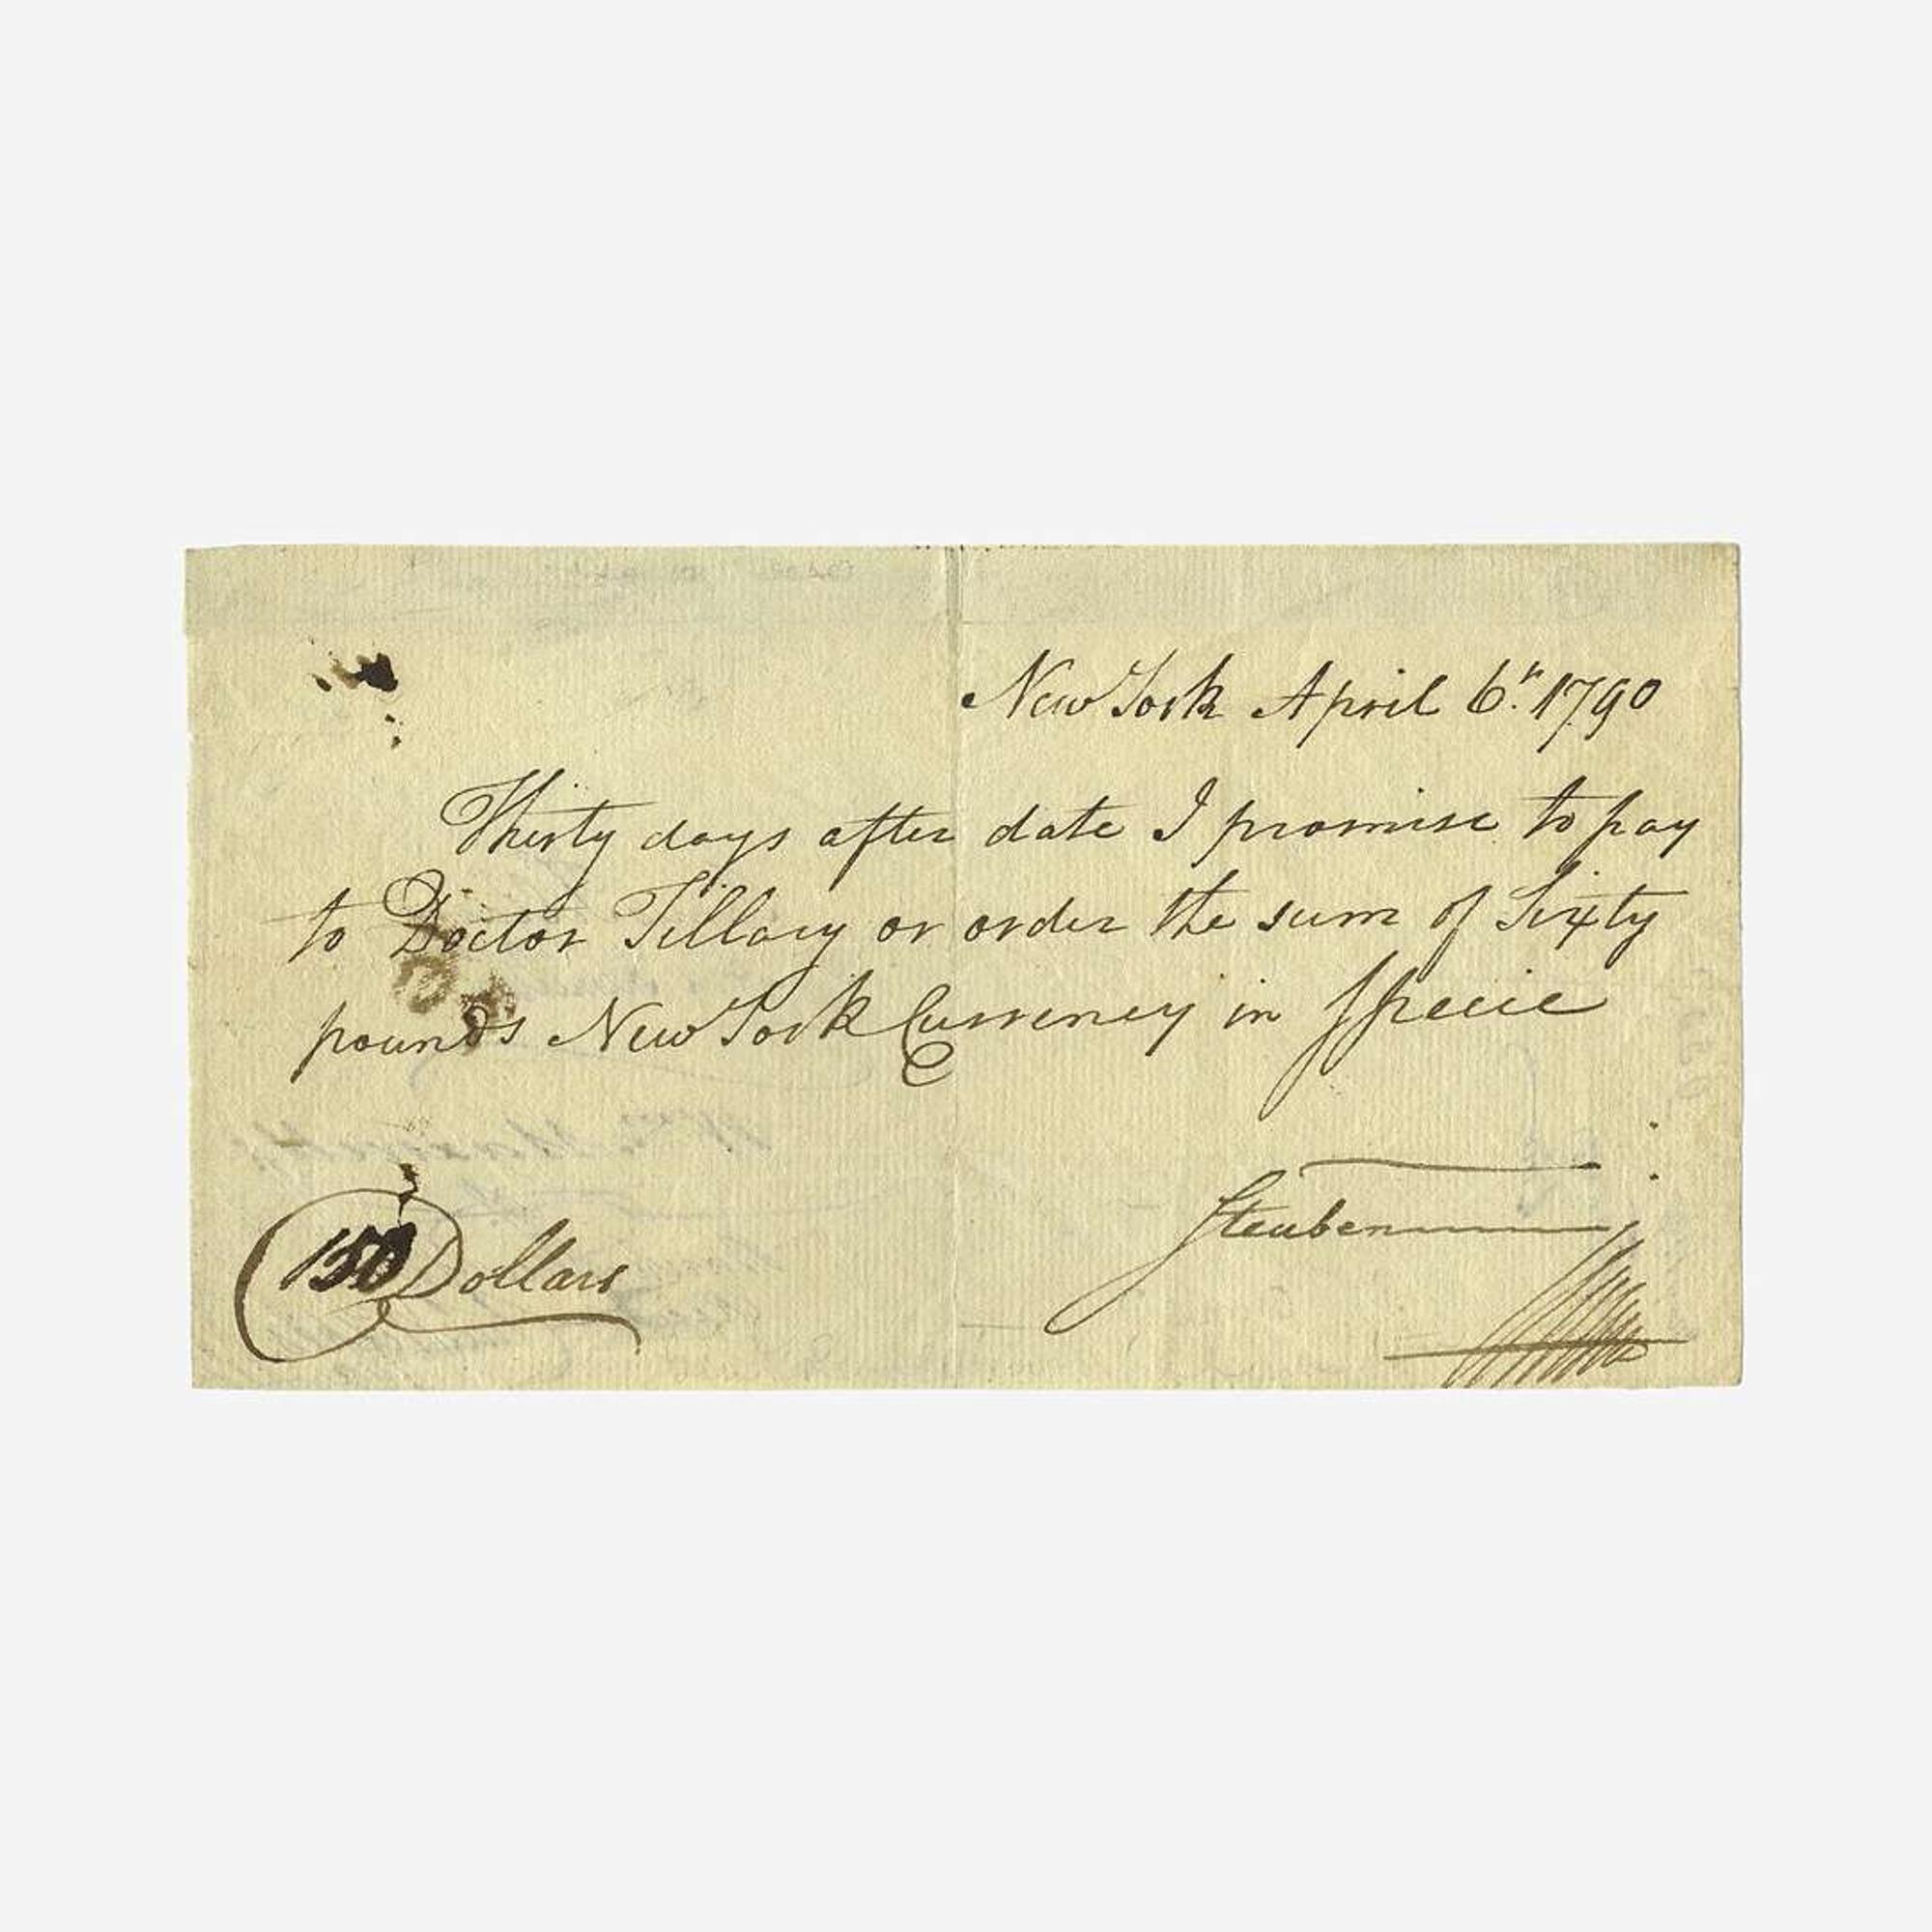 New York April 6th. 1790
Thirty days after date I promise to pay
to Doctor Tillary or order the sum of Sixty
pounds New York Currency in Specie
Steuben
150 Dollars